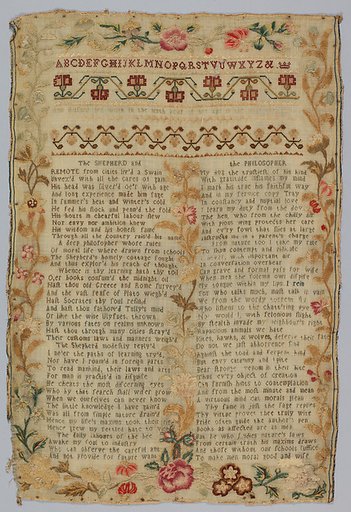 ABCDEFGHIJKLMNOPQRSTVUWXYZ&
The SHEPHERD and
REMOTE from cities liv'd a Swain
Unvex'd with all the cares of gain
His head was silver'd o'er with age
And long experience made him sage
In summer's heat and winter's cold
He fed his flock and pen'd the fold
His hours in chearful labour flew
Nor envy nor ambition knew
His wisdom and his honest fame
Through all the country rais'd his name
A deep philosopher whose rules
Of moral life where drawn from schools
The Shepherd's homely cottage sought
And thus explor'd his reach of thought
Whence is thy learning hath thy toil
O,er books consum'd the midnight oil
Hast thou old Greece and Rome survey'd
And the vast sense of Plato weigh'd
Hath Socrates thy soul refin'd
And hast thou fathom'd Tully's mind
Or like the wise Ulysses thrown
By various fates on realms unknown
Hast thou through many cities stray'd
Their customs laws and manners weigh'd
The Shepherd modestly reply'd
I never the paths of learning try'd
Nor have I roam'd in foreign parts
To read mankind, their laws and arts
For man is practis'd in disguise
He cheats the most discerning eyes
Who by that search shall wiser grow
When we ourselves can never know
The little knowledge I have gain'd
Was all from simple nature drain'd
Hence my life's maxims took their rise
Hence grew my settled hate to vice
The daily labours of the bee
Awake my soul to industry
Who can observe the careful ant
And not provide for future want
the PHILOSOPHER
My dog the trustiest of his kind
With gratitude inflames my mind
I mark his true his faithful way
And in my service copy Tray
In constancy and nuptial love
I learn my duty from the dove
The hen, who from the chilly air
With pious wing protects her care
And ev'ry fowl that flies at large
Instructs me in a parent's charge
From nature too I take my rule
To shun contempt and ridicule
I never, with important air
In conversation overbear
Can grave and formal pass for wise
When men the solemn owl despise
My tongue within my lips I rein
For who talks much, must talk in vain
We from the wordy torrent fly
Who listens to the chatt'ring pye
Nor would I, with felonious flight
By stealth invade my neighbour's right
Rapacious animals we hate
Kites, hawks, & wolves, deserve their fate
Do not we just abhorrence find
Against the toad and serpent kind
But envy calumny and spite
Bear stronger venom in their bite
Thus every object of creation
Can furnish hints to contemplation
And from the most minute and mean
A virtuous mind can morals glean
Thy fame is just the sage replies
Thy virtue proves thee truly wise
Pride often guide the author's pen
Books as affected are as men
But he who studies nature's laws
From certain truth his maxims draws
And those without our schools suffice
To make men moral good and wise